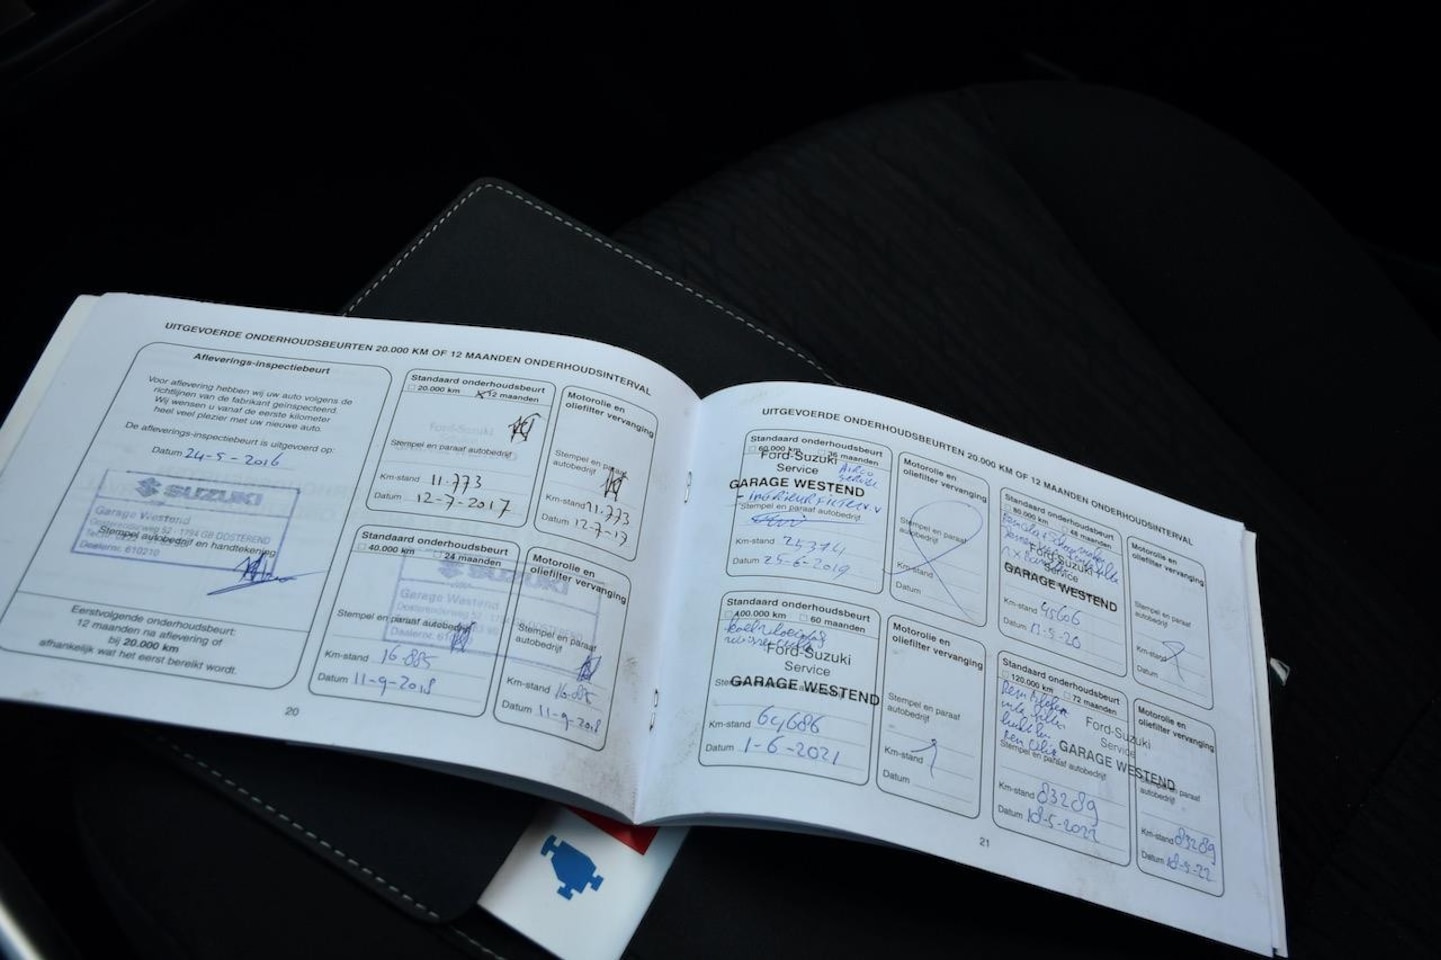 UITGEVOERDE ONDERHOUDSBEURTEN 20.000 KM OF 12 MAANDEN ONDERHOUDSINTERVAL
Afleverings-inspectiebeurt
Voor aflevering hebben wij uw auto volgens de
richtlijnen van de fabrikant geïnspecteerd.
Wij wensen u vanaf de eerste kilometer
heel veel plezier met uw nieuwe auto.
De afleverings-inspectiebeurt is uitgevoerd op:
Datum 24-5-2016
SUZUKI
Garage Westend
1794 GB OOSTEREND
Stempel autobedrijf en handtekening
Dealernr. 610210
Eerstvolgende onderhoudsbeurt:
12 maanden na aflevering of
bij 20.000 km
afhankelijk wat het eerst bereikt wordt.
Standaard onderhoudsbeurt
20.000 km 12 maanden
Stempel en paraaf autobedrijf
Km-stand 11.773
Datum 12-7-2017
Motorolie en
oliefilter vervanging
Stempel en paraaf
autobedrijf
Km-stand 11.773
Datum 12-7-17
Standaard onderhoudsbeurt
40.000 km 24 maanden
SUZUKI
Garage Westend
Stempel en paraaf autobedrijf
Km-stand 16.885
Datum 11-9-2018
Motorolie en
oliefilter vervanging
Stempel en paraaf
autobedrijf
Km-stand
Datum 11-9-2018
20
UITGEVOERDE ONDERHOUDSBEURTEN 20.000 KM OF 12 MAANDEN ONDERHOUDSINTERVAL
Standaard onderhoudsbeurt
60.000 km 36 maanden
Ford-Suzuki
Service
GARAGE WESTEND
Stempel en paraaf autobedrijf
Km-stand 25374
Datum 25-6-2019
Motorolie en
oliefilter vervanging
Stempel en paraaf
autobedrijf
Km-stand
Datum
Standaard onderhoudsbeurt
80.000 km 48 maanden
Ford-Suzuki
Service
GARAGE WESTEND
Km-stand 45606
Datum
Motorolie en
oliefilter vervanging
Stempel en paraaf
autobedrijf
Km-stand
Datum
Standaard onderhoudsbeurt
100.000 km 60 maanden
Ford-Suzuki
Service
GARAGE WESTEND
Km-stand 64686
Datum 1-6-2021
Motorolie en
oliefilter vervanging
Stempel en paraaf
autobedrijf
Km-stand
Datum
Standaard onderhoudsbeurt
120.000 km 72 maanden
Ford-Suzuki
Service
GARAGE WESTEND
Stempel en paraaf autobedrijf
Km-stand 83289
Datum 18-5-2022
Motorolie en
oliefilter vervanging
Stempel en paraaf
autobedrijf
Km-stand 83289
Datum 18-5-22
21